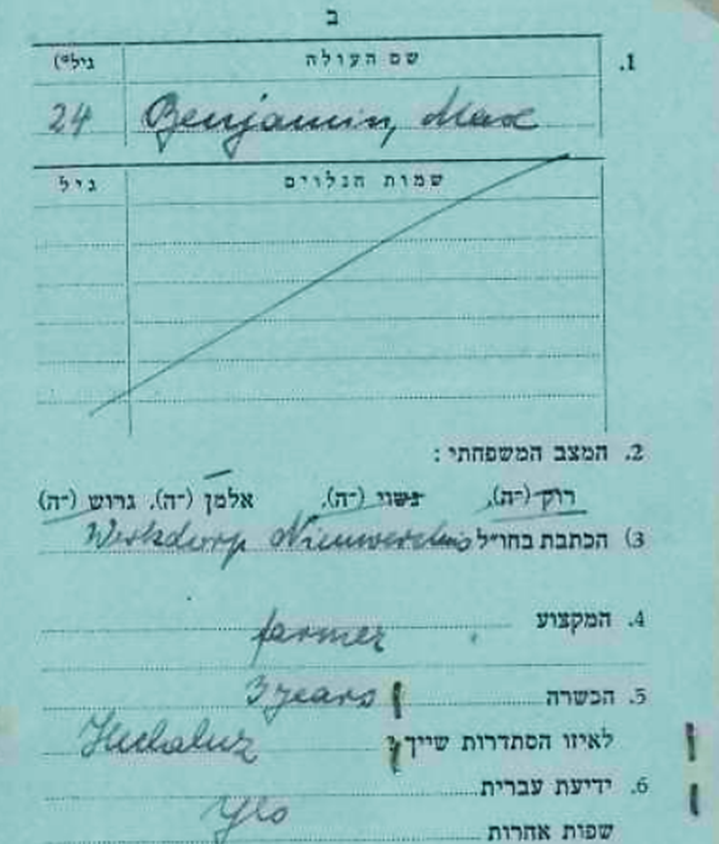 ב
1. שם העולה גיל*)
Benjamin, Max 24
שמות הנלוים גיל
2. המצב המשפחתי:
רוק (־ה), נשוי (־ה), אלמן (־ה), גרוש (־ה)
3) הכתבת בחו״ל Werkdorp Nieuwersluis
4. המקצוע
farmer
5. הכשרה 3 years
לאיזו הסתדרות שייך Hechaluz
6. ידיעת עברית
yes
שפות אחרות